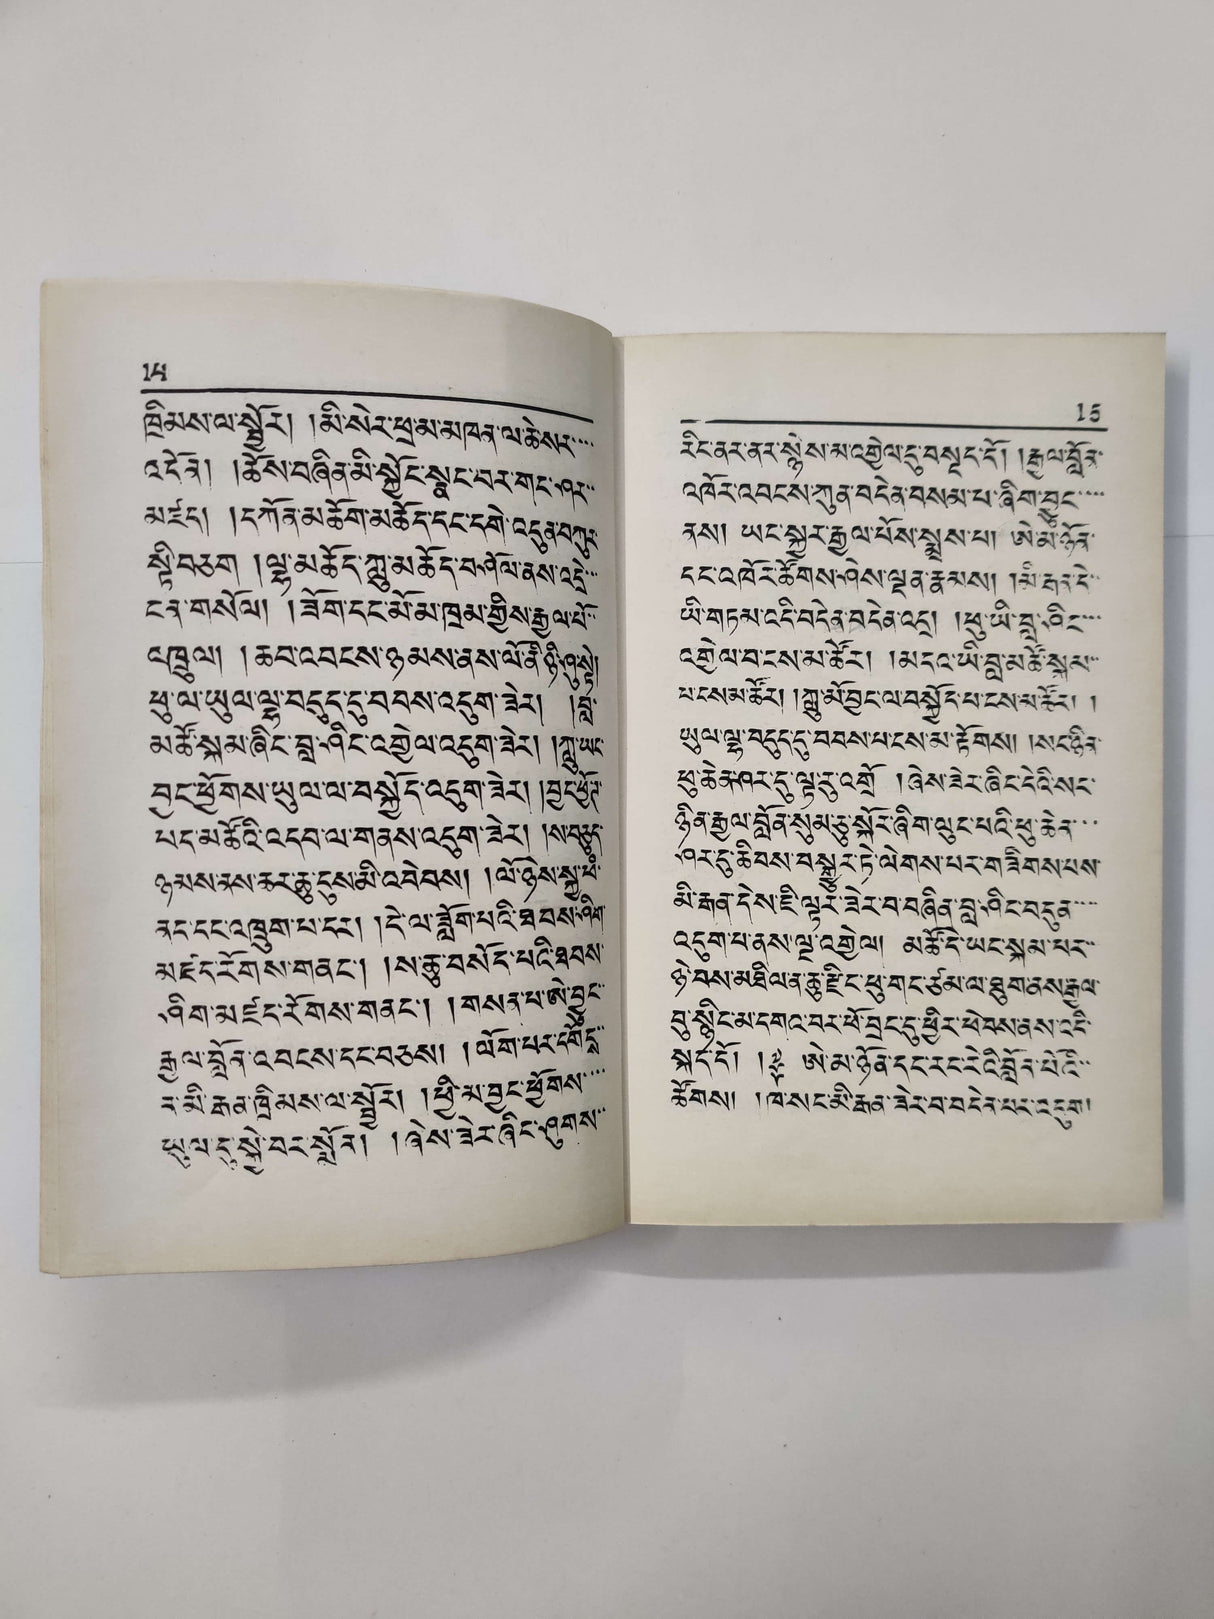 14
ཁྲིམས་ལ་སྦྱོར། །མི་སེར་ཕྲ་མ་མཁན་ལ་ཆེསར་
འདེན། །ཆོས་བཞིན་མི་སྐྱོང་སྣང་པར་གང་ཤར་
མ་རྫད། །དཀོན་མཆོག་མཆོད་དང་དགེ་འདུན་བཀུར་
སྟི་བཅག །ལྷ་མཆོད་ཀླུ་མཆོད་བཤོལ་ནས་འདྲེ་
ངན་གསོལ། །ཟོག་དང་མོ་མ་ཁྲམ་གྱིས་རྒྱལ་པོ་
འཁྲུལ། །ཆབ་འབངས་ཉམས་ནས་ལོ་ནི་ཉི་ཤུ་སྟེ།
ཕུ་ལ་ཡུལ་ལྷ་བདུད་དུ་བབས་འདུག་ཟེར། །བླ་
མཚོ་སྐམ་ཞིང་བླ་ཤིང་འགྱེལ་འདུག་ཟེར། །ཀླུ་ཡང་
བྱང་ཕྱོགས་ཡུལ་ལ་བསྐྱོད་འདུག་ཟེར། །བྱང་ཕྱོད་
པད་མ་མཚོའི་འདབ་ལ་གནས་འདུག་ཟེར། །ས་བཅུད་
ཉམས་ནས་ཆར་ཆུ་དུས་མི་འབེབས། །ལོ་ཉེས་སྐྱ་ཡི་
ནད་དང་འཁྲུག་པ་དར། །དེ་ལ་ཟློག་པའི་ཐབས་ཤིག་
མཛད་རོགས་གནང་། །ས་ཆུ་བསོད་པའི་ཐབས་
ཤིག་མཛད་རོགས་གནང་། །གསན་པ་ཨེ་བྱུང་
རྒྱལ་བློན་འབངས་དང་བཅས། །ལོག་པར་དགོངས་
ན་མི་རྒན་ཁྲིམས་ལ་སྦྱོར། །ཕྱི་མ་བྱང་ཕྱོགས་
ཡུལ་དུ་སྐྱེ་བར་སྨོན། །ཞེས་ཟེར་ཞིང་ཤུགས་
15
རིང་ནར་ནར་སྙེས་མ་འགྱེལ་དུ་བསྡད་དོ། །རྒྱལ་བློན་
འཁོར་འབངས་ཀུན་བདེན་བསམ་པ་ཞིག་བྱུང་
ནས། ཡང་སྐྱར་རྒྱལ་པོས་སྨྲས་པ། ཨེ་མ་ཉོན་
དང་འཁོར་ཚོགས་ཤེས་ལྡན་རྣམས། །མི་རྒན་དེ་
ཡི་གཏམ་འདི་བདེན་བདེན་འདྲ། །ཕུ་ཡི་བླ་ཤིང་
འགྱེལ་བ་ངས་མ་ཚོར། །མདའ་ཡི་བླ་མཚོ་སྐམ་
པ་ངས་མ་ཚོར། །ཀླུ་མོ་བྱང་ལ་བསྐྱོད་པ་ངས་མ་ཚོར། །
ཡུལ་ལྷ་བདུད་དུ་བབས་པ་ངས་མ་རྟོགས། །སང་ཉིན་
ཕུ་ཆེན་ཤར་དུ་ལྟ་རུ་འགྲོ །ཞེས་ཟེར་ཞིང་དེའི་སང་
ཉིན་རྒྱལ་བློན་སུམ་ཅུ་སྐོར་ཞིག་ལུང་པའི་ཕུ་ཆེན་
ཤར་དུ་ཆིབས་བསྒྱུར་ཏེ་ལེགས་པར་གཟིགས་པས་
མི་རྒན་དེས་ཇི་ལྟར་ཟེར་བ་བཞིན་བླ་ཤིང་བདུན་
འདུག་པ་ནས་ལྔ་འགྱེལ། མཚོ་དེ་ཡང་སྐམ་པར་
ཉེ་བས་མཐིལ་ན་ཆུ་རྫིང་ཕུ་གང་ཙམ་ལ་ཐུག་ནས་རྒྱལ་
བུ་སྙིང་མ་དགའ་བར་ཕོ་བྲང་དུ་ཕྱིར་ཕེབས་ནས་འདི་
སྐད་དོ། །ཨེ་མ་ཉོན་དང་རང་རེའི་བློན་པོའི་
ཚོགས། །ཁ་སང་མི་རྒན་ཟེར་བ་བདེན་པར་འདུག།